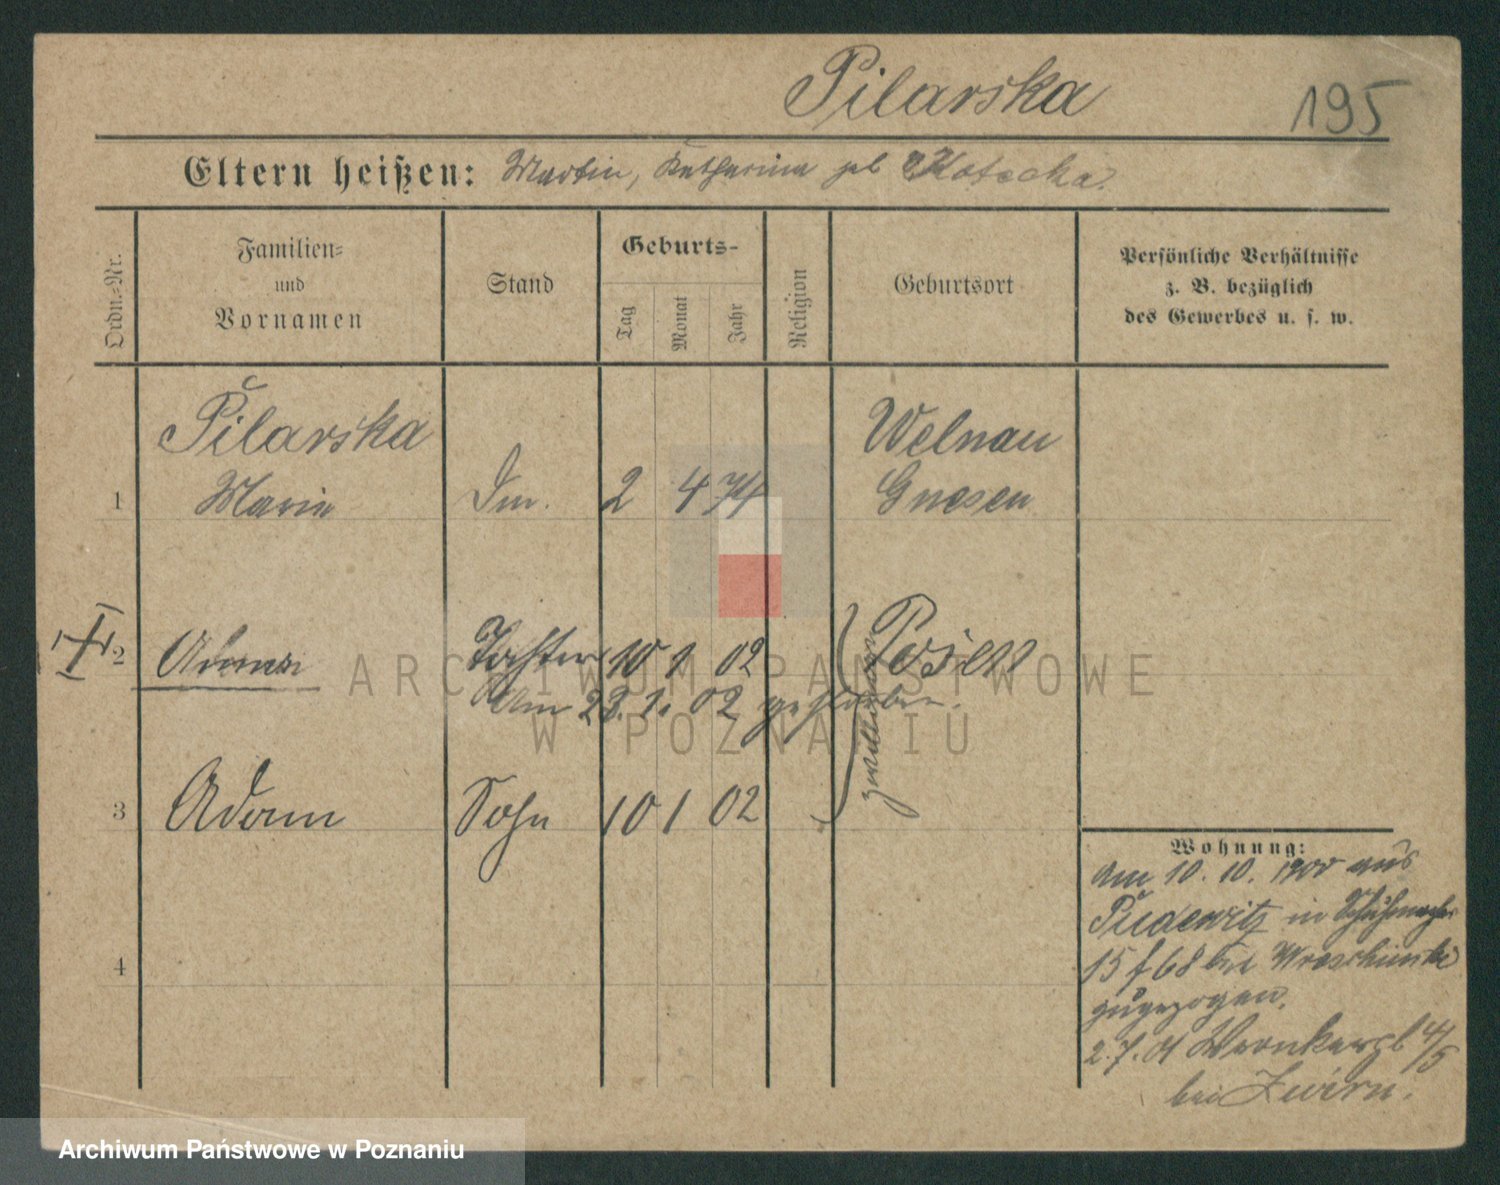 Pilarska
195
Eltern heißen: Martin, Katharina geb
Ordn.-Nr.
Familien-
und
Vornamen
Stand
Geburts-
Tag
Monat
Jahr
Religion
Geburtsort
Persönliche Verhältnisse
z. B. bezüglich
des Gewerbes u. s. w.
Pilarska
Welnau
1 Marie 2 4 74 Gnesen
2 Tochter 10 1 02 Posen
Am 23. 1. 02 gestorben.
3 Adam Sohn 10 1 02
4
Wohnung:
Am 10. 10. 1900 aus
Pudewitz in Schuhmacher
15 f 68 bei
zugezogen.
2. 7. 01 Wronkergl 4/5
bei Zwirn.
ARCHIWUM PAŃSTWOWE
W POZNANIU
Archiwum Państwowe w Poznaniu